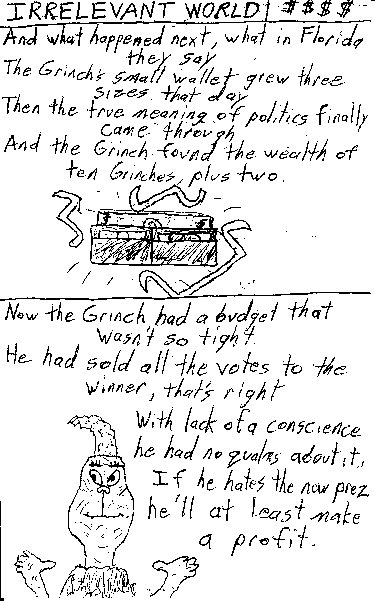 IRRELEVANT WORLD! $$$$
And what happened next, what in Florida
they say
The Grinch's small wallet grew three
sizes that day
Then the true meaning of politics finally
came through
And the Grinch found the wealth of
ten Grinches, plus two.
Now the Grinch had a budget that
wasn't so tight.
He had sold all the votes to the
winner, that's right
With lack of a conscience
he had no qualms about it,
If he hates the now prez
he'll at least make
a profit.